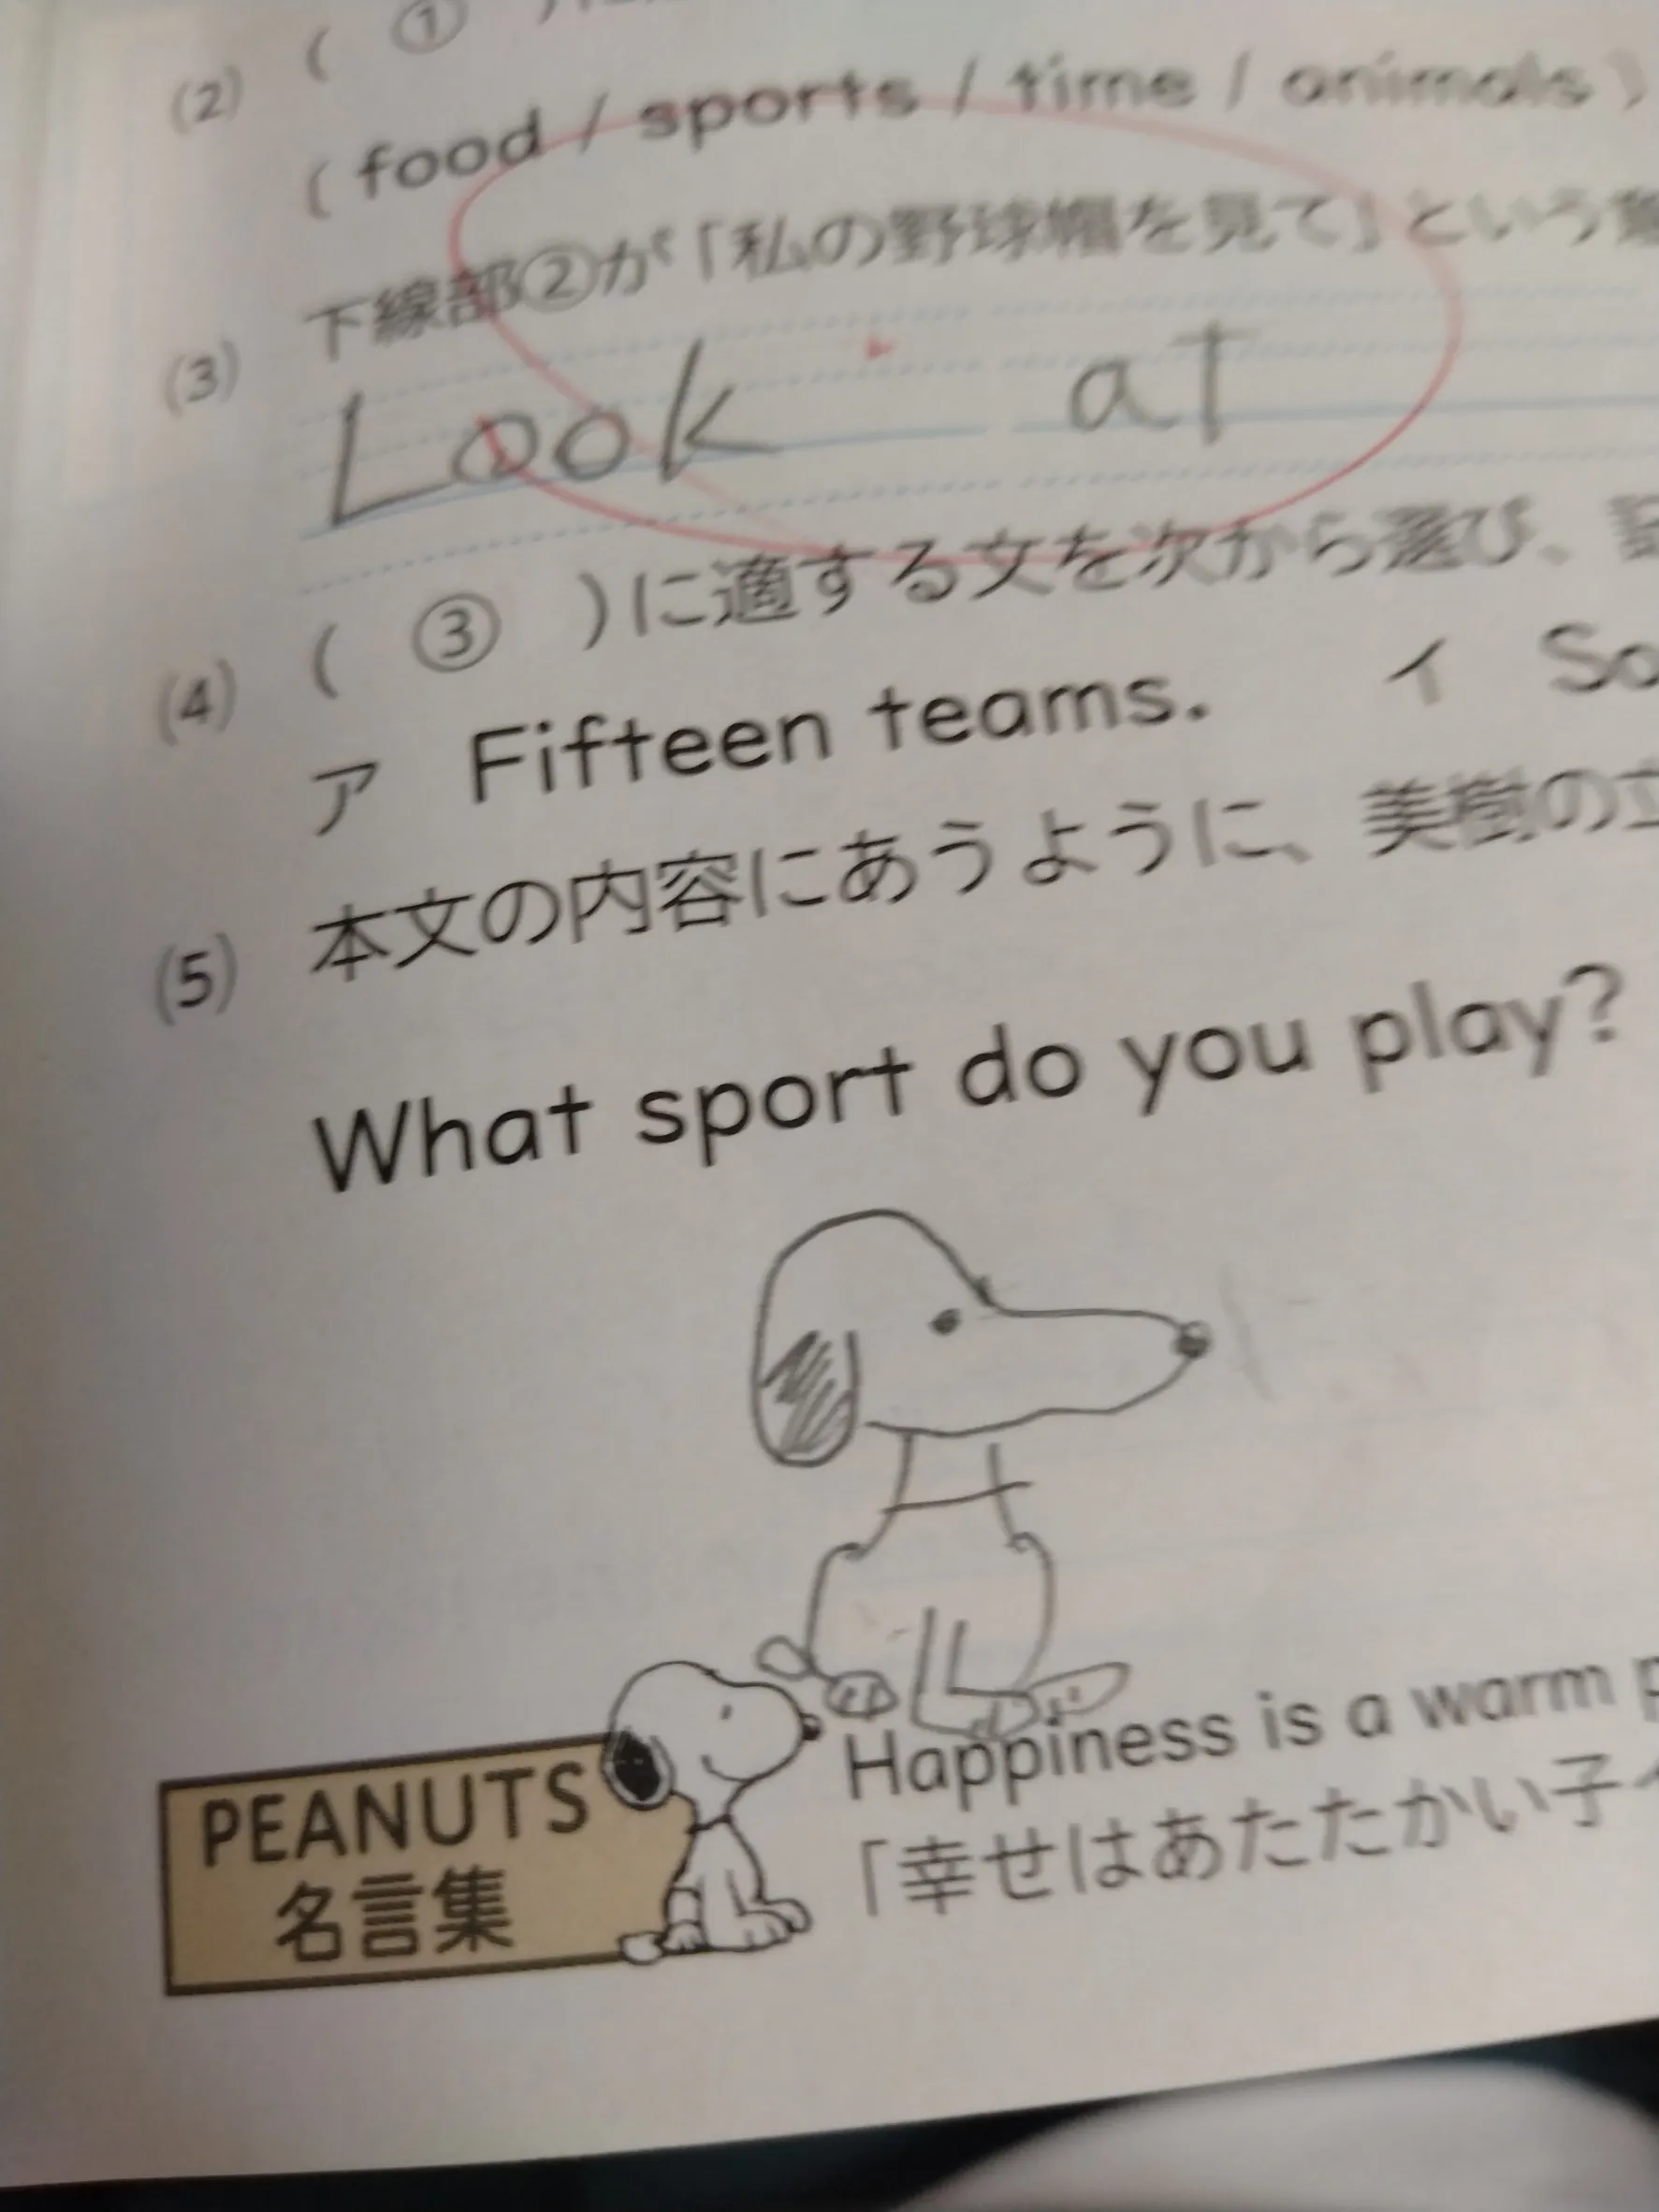 (2) ( ①
( food / sports / time / animals )
(3) 下線部②が「私の野球帽を見て」という
Look at
(4) ( ③ )に適する文を次から選び、
ア Fifteen teams. イ
(5) 本文の内容にあうように、美樹の
What sport do you play?
Happiness is a warm
PEANUTS
名言集
「幸せはあたたかい子